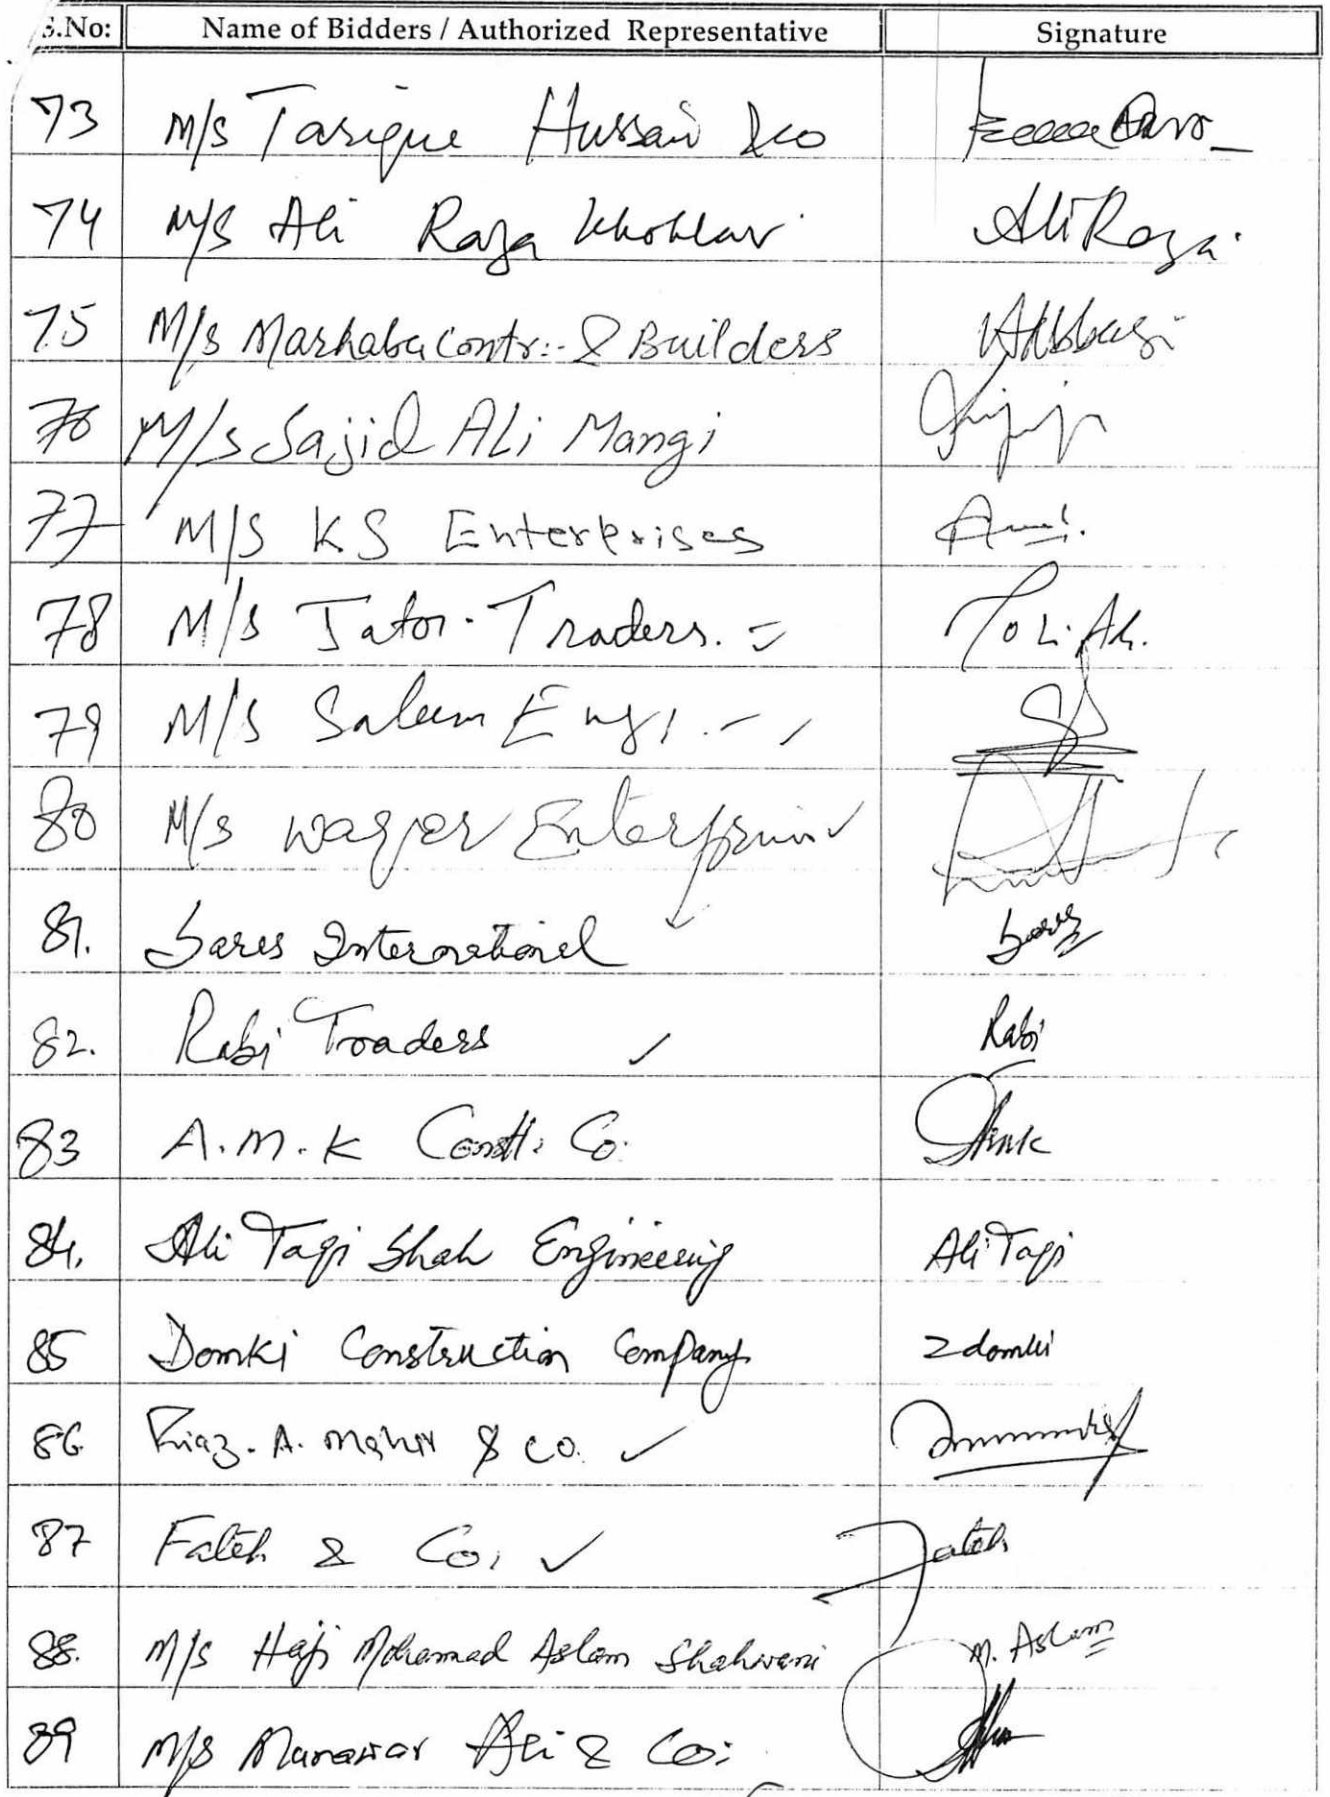 S.No: Name of Bidders / Authorized Representative Signature
73 M/s Tarique Hussain &co
74 M/s Ali Raza Khokhar Ali Raza
75 M/s Marhaba Contr:- & Builders Abbasi
76 M/s Sajid Ali Mangi
77 M/S KS Enterprises
78 M/s Jatoi Traders.
79 M/S Saleem Eng
80 M/s Waqer Enterprises
81. Sares International
82. Rabi Traders Rabi
83 A.M.K Constt. Co.
84. Ali Taqi Shah Engineering Ali Taqi
85 Domki Construction Company Zdomki
86 Riaz. A. Mahar & CO.
87 Fateh & Co, Fateh
88. M/s Haji Mohammad Aslam Shahwani M. Aslam
89 M/s Manawar Ali & Co: